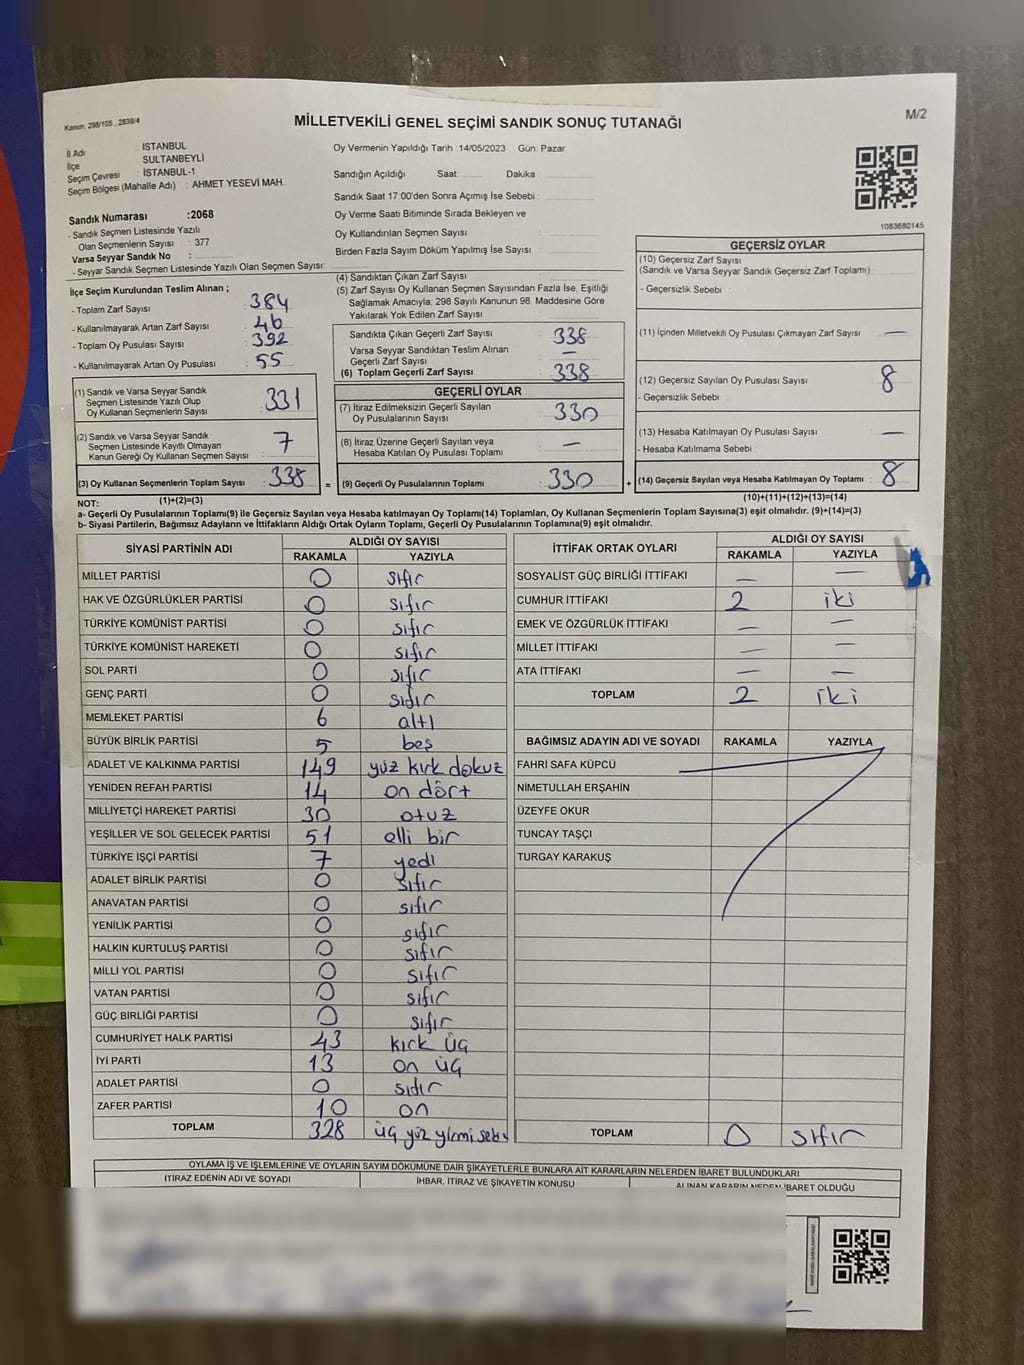 Kanun, 298/105 , 2839/4
MİLLETVEKİLİ GENEL SEÇİMİ SANDIK SONUÇ TUTANAĞI
M/2
İl Adı : İSTANBUL
İlçe : SULTANBEYLİ
Seçim Çevresi : İSTANBUL-1
Seçim Bölgesi (Mahalle Adı) : AHMET YESEVİ MAH.
Sandık Numarası :2068
- Sandık Seçmen Listesinde Yazılı
Olan Seçmenlerin Sayısı : 377
Varsa Seyyar Sandık No :
- Seyyar Sandık Seçmen Listesinde Yazılı Olan Seçmen Sayısı:
Oy Vermenin Yapıldığı Tarih :14/05/2023 Gün: Pazar
Sandığın Açıldığı Saat: Dakika :
Sandık Saat 17:00'den Sonra Açımış İse Sebebi :
Oy Verme Saati Bitiminde Sırada Bekleyen ve
Oy Kullandırılan Seçmen Sayısı :
Birden Fazla Sayım Döküm Yapılmış İse Sayısı :
1083680145
İlçe Seçim Kurulundan Teslim Alınan ;
- Toplam Zarf Sayısı : 384
- Kullanılmayarak Artan Zarf Sayısı : 46
- Toplam Oy Pusulası Sayısı : 392
- Kullanılmayarak Artan Oy Pusulası : 55
(1) Sandık ve Varsa Seyyar Sandık
Seçmen Listesinde Yazılı Olup
Oy Kullanan Seçmenlerin Sayısı : 331
(2) Sandık ve Varsa Seyyar Sandık
Seçmen Listesinde Kayıtlı Olmayan
Kanun Gereği Oy Kullanan Seçmen Sayısı : 7
(3) Oy Kullanan Seçmenlerin Toplam Sayısı : 338
(1)+(2)=(3)
(4) Sandıktan Çıkan Zarf Sayısı :
(5) Zarf Sayısı Oy Kullanan Seçmen Sayısından Fazla İse, Eşitliği
Sağlamak Amacıyla; 298 Sayılı Kanunun 98. Maddesine Göre
Yakılarak Yok Edilen Zarf Sayısı :
Sandıkta Çıkan Geçerli Zarf Sayısı : 338
Varsa Seyyar Sandıktan Teslim Alınan
Geçerli Zarf Sayısı : —
(6) Toplam Geçerli Zarf Sayısı : 338
GEÇERLİ OYLAR
(7) İtiraz Edilmeksizin Geçerli Sayılan
Oy Pusulalarının Sayısı : 330
(8) İtiraz Üzerine Geçerli Sayılan veya
Hesaba Katılan Oy Pusulası Toplamı : —
= (9) Geçerli Oy Pusulalarının Toplamı : 330
GEÇERSİZ OYLAR
(10) Geçersiz Zarf Sayısı
(Sandık ve Varsa Seyyar Sandık Geçersiz Zarf Toplamı) :
- Geçersizlik Sebebi :
(11) İçinden Milletvekili Oy Pusulası Çıkmayan Zarf Sayısı : —
(12) Geçersiz Sayılan Oy Pusulası Sayısı : 8
- Geçersizlik Sebebi :
(13) Hesaba Katılmayan Oy Pusulası Sayısı : —
- Hesaba Katılmama Sebebi :
+ (14) Geçersiz Sayılan veya Hesaba Katılmayan Oy Toplamı : 8
(10)+(11)+(12)+(13)=(14)
NOT:
a- Geçerli Oy Pusulalarının Toplamı(9) ile Geçersiz Sayılan veya Hesaba Katılmayan Oy Toplamı(14) Toplamları, Oy Kullanan Seçmenlerin Toplam Sayısına(3) eşit olmalıdır. (9)+(14)=(3)
b- Siyasi Partilerin, Bağımsız Adayların ve İttifakların Aldığı Ortak Oyların Toplamı, Geçerli Oy Pusulalarının Toplamına(9) eşit olmalıdır.
SİYASİ PARTİNİN ADI ALDIĞI OY SAYISI
RAKAMLA YAZIYLA
MİLLET PARTİSİ 0 sıfır
HAK VE ÖZGÜRLÜKLER PARTİSİ 0 sıfır
TÜRKİYE KOMÜNİST PARTİSİ 0 sıfır
TÜRKİYE KOMÜNİST HAREKETİ 0 sıfır
SOL PARTİ 0 sıfır
GENÇ PARTİ 0 sıfır
MEMLEKET PARTİSİ 6 altı
BÜYÜK BİRLİK PARTİSİ 5 beş
ADALET VE KALKINMA PARTİSİ 149 yüz kırk dokuz
YENİDEN REFAH PARTİSİ 14 on dört
MİLLİYETÇİ HAREKET PARTİSİ 30 otuz
YEŞİLLER VE SOL GELECEK PARTİSİ 51 elli bir
TÜRKİYE İŞÇİ PARTİSİ 7 yedi
ADALET BİRLİK PARTİSİ 0 sıfır
ANAVATAN PARTİSİ 0 sıfır
YENİLİK PARTİSİ 0 sıfır
HALKIN KURTULUŞ PARTİSİ 0 sıfır
MİLLİ YOL PARTİSİ 0 sıfır
VATAN PARTİSİ 0 sıfır
GÜÇ BİRLİĞİ PARTİSİ 0 sıfır
CUMHURİYET HALK PARTİSİ 43 kırk üç
İYİ PARTİ 13 on üç
ADALET PARTİSİ 0 sıfır
ZAFER PARTİSİ 10 on
TOPLAM 328 üç yüz yirmi sekiz
İTTİFAK ORTAK OYLARI ALDIĞI OY SAYISI
RAKAMLA YAZIYLA
SOSYALİST GÜÇ BİRLİĞİ İTTİFAKI — —
CUMHUR İTTİFAKI 2 iki
EMEK VE ÖZGÜRLÜK İTTİFAKI — —
MİLLET İTTİFAKI — —
ATA İTTİFAKI — —
TOPLAM 2 iki
BAĞIMSIZ ADAYIN ADI VE SOYADI RAKAMLA YAZIYLA
FAHRİ SAFA KÜPCÜ
NİMETULLAH ERŞAHİN
ÜZEYFE OKUR
TUNCAY TAŞÇI
TURGAY KARAKUŞ
TOPLAM 0 sıfır
OYLAMA İŞ VE İŞLEMLERİNE VE OYLARIN SAYIM DÖKÜMÜNE DAİR ŞİKAYETLERLE BUNLARA AİT KARARLARIN NELERDEN İBARET BULUNDUKLARI
İTİRAZ EDENİN ADI VE SOYADI İHBAR, İTİRAZ VE ŞİKAYETİN KONUSU ALINAN KARARIN NEDEN İBARET OLDUĞU